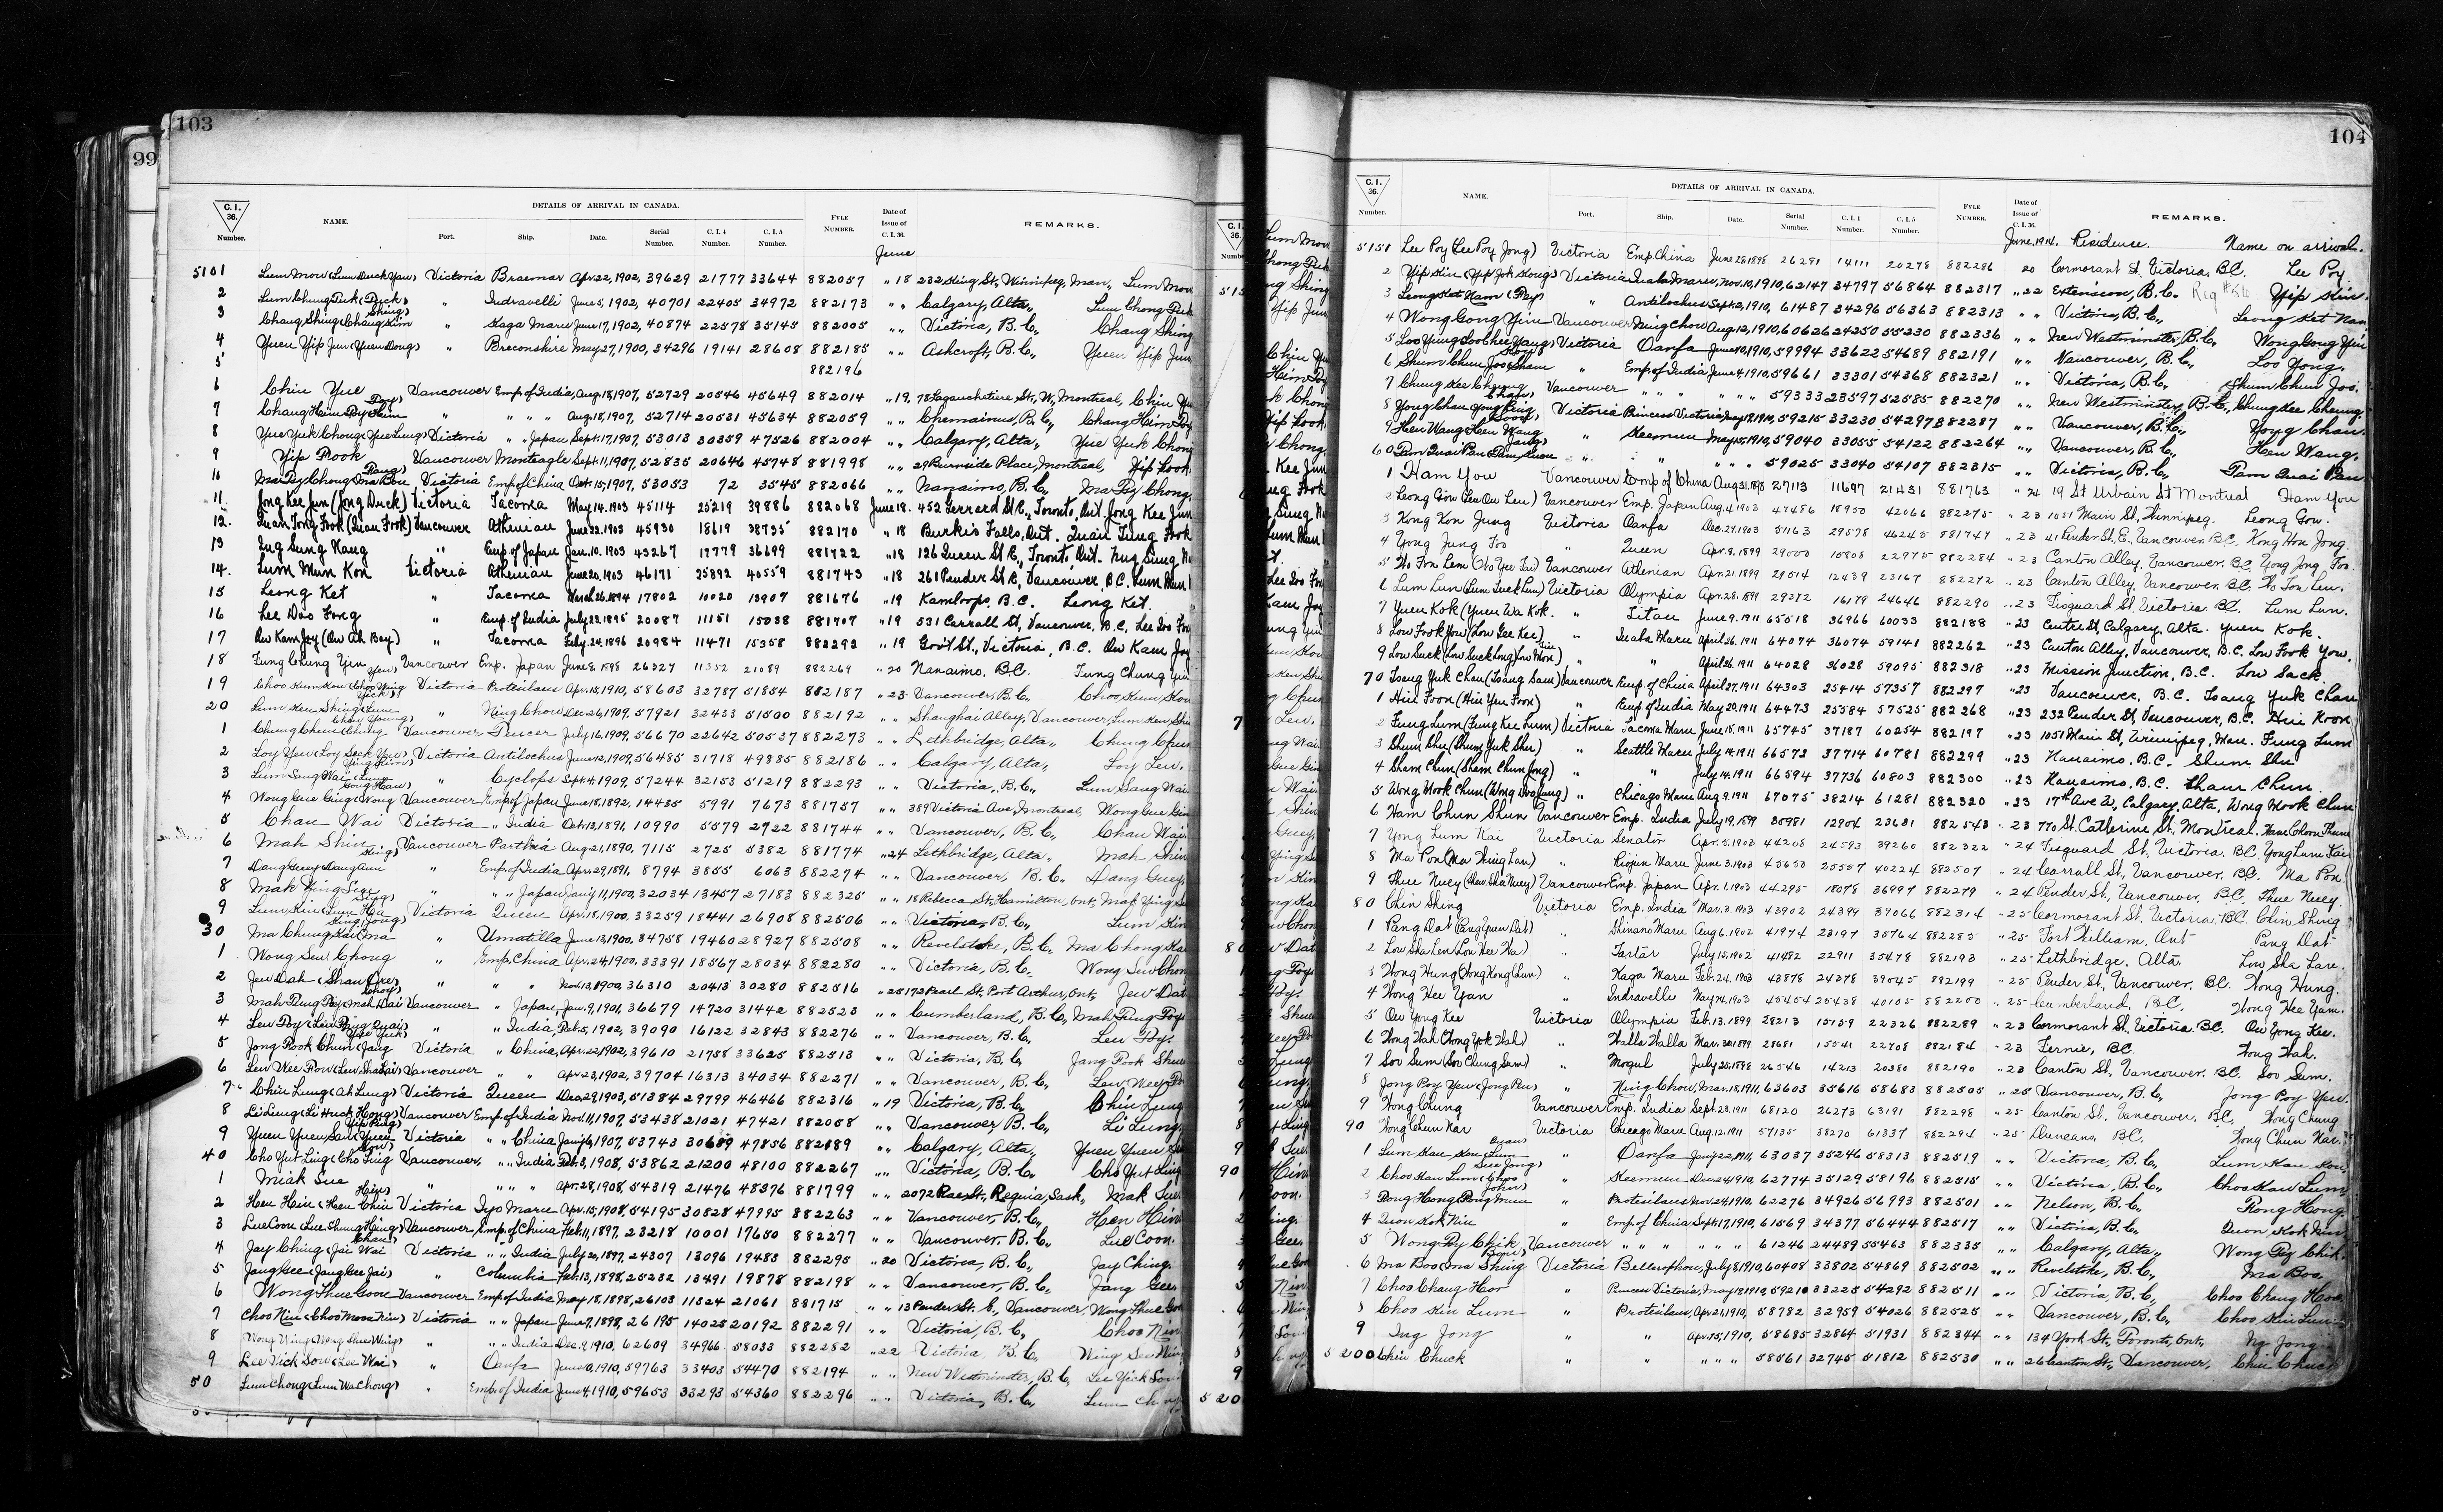 99
103
C. I. 36. Number.
NAME.
DETAILS OF ARRIVAL IN CANADA.
Port. Ship. Date. Serial Number. C. I. 4 Number. C. I. 5 Number.
FYLE NUMBER.
Date of Issue of C. I. 36.
REMARKS.
June
5101 Lum Mow (Lum Duck Yaw) Victoria Braemar Apr. 22, 1902, 39629 21777 33644 882057 " 18 232 King St., Winnipeg, Man., Lum Mow
2 Lum Chung Puk (Puck) " Indravelli June 5, 1902, 40701 22405 34972 882173 " " Calgary, Alta., Lum Chong Puk
3 Chang Shing (Chang Kim Shing) " Kaga Maru June 17, 1902, 40874 22578 35145 882005 " " Victoria, B.C., Chang Shing
4 Yuen Yip Jun (Yuen Dong) " Breconshire May 27, 1900, 34296 19141 28608 882185 " " Ashcroft, B.C., Yuen Yip Jun
5 882196
6 Chin Yue Vancouver Emp. of India, Aug. 18, 1907, 52729 20546 45649 882014 " 19, 78 Lagauchetiere St., W., Montreal, Chin Yu
7 Chang Heim Poy " " " " Aug. 18, 1907, 52714 20531 45634 882059 " " Chemainus, B.C., Chang Heim Poy
8 Yue Yuk Chong (Yue Lung) Victoria " " Japan Sept. 17, 1907, 53013 30359 47526 882004 " " Calgary, Alta., Yue Yuk Chong
9 Yip Fook Vancouver Monteagle Sept. 11, 1907, 52835 20646 45748 881998 " " 29 Burnside Place, Montreal, Yip Fook
10 Ma Poy Chong Victoria Emp. of China Oct. 15, 1907, 53053 72 3545 882066 " " Nanaimo, B.C., Ma Poy Chong
11. Jong Kee Jun (Jong Duck) Victoria Tacoma May 14. 1903 45114 25219 39886 882068 June 18. 452 Gerrard St. E., Toronto, Ont. Jong Kee Jun
12. Quan Tong Fook (Quan Fook) Vancouver Athenian June 22. 1903 45930 18619 38735 882170 " 18 Burk's Falls, Ont. Quan Tung Fook
13 Ing Sung Nang " Emp. of Japan Jan. 10. 1903 43267 17779 36699 881722 " 18 126 Queen St. E., Toronto, Ont. Nug Sung
14. Lum Mun Kon Victoria Athenian June 20. 1903 46171 25892 40559 881743 " 18 261 Pender St. E., Vancouver, B.C. Lum Mun
15 Leong Ket " Tacoma March 26. 1894 17802 10020 13907 881676 " 19 Kamloops, B.C. Leong Ket.
16 Lee Doo Fong " Emp. of India July 23. 1895 20087 11151 15038 881707 " 19 531 Carrall St., Vancouver, B.C.
17 Ow Kam Joy (Ow Ah Bey) " Tacoma Feby. 24. 1896 20984 11471 15358 882292 " 19 Gov't St., Victoria, B.C. Ow Kam Joy
18 Fung Chung Yin Vancouver Emp. Japan June 8. 1898 26327 11352 21089 882269 " 20 Nanaimo. B.C. Fung Chung Yin
19 Choo Kum Kow Victoria Protesilaus Apr. 15, 1910, 58603 32787 51854 882187 " 23 Vancouver, B.C. Choo Kum Kow
20 Lum Ken Shing " Ning Chow Dec. 26, 1909, 57921 32433 51500 882192 " " Shanghai Alley, Vancouver, Lum Ken Shin
1 Chung Chun Vancouver Teucer July 16, 1909, 56670 22642 50537 882273 " " Lethbridge, Alta., Chung Chun
2 Loy Yew (Loy Seck Yew) Victoria Antilochus June 12, 1909, 56485 31718 49885 882186 " " Calgary, Alta., Loy Lew.
3 Lum Sang Wai " Cyclops Sept. 4, 1909, 57244 32153 51219 882293 " " Victoria, B.C., Lum Sang Wai
4 Wong Gue Ging Vancouver Emp. of Japan June 18, 1892, 14485 5991 7673 881757 " " 389 Victoria Ave, Montreal, Wong Gue Gin
5 Chan Wai Victoria " India Oct. 13, 1891, 10990 5579 2722 881744 " " Vancouver, B.C., Chan Wai
6 Mah Shin Vancouver Parthia Aug. 21, 1890, 7115 2725 5382 881774 " 24 Lethbridge, Alta., Mah Shin
7 Dang Guey " Emp. of India Apr. 29, 1891, 8794 3855 6063 882274 " " Vancouver, B.C. Dang Guey
8 Mak Ying Sing " " " Japan Jan'y 11, 1900, 32034 13457 27183 882325 " " 18 Rebecca St., Hamilton, Ont. Mak Ying
9 Lum Kin Victoria Queen Apr. 18, 1900, 33259 18441 26908 882506 " " Victoria, B.C., Lum Kin
30 Ma Chung Kai " Umatilla June 13, 1900, 34758 19460 28927 882508 " " Revelstoke, B.C., Ma Chong Kai
1 Wong Sew Chong " Emp. China Apr. 24, 1900, 33391 18567 28034 882280 " " Victoria, B.C., Wong Sew Chon
2 Jew Dah " " " Nov. 13, 1900, 36310 20413 30280 882516 " 25 172 Pearl St., Port Arthur, Ont., Jew Dat
3 Mah Fung Poy Vancouver " Japan, Jan. 9, 1901, 36679 14720 31442 882523 " " Cumberland, B.C., Mah Fung Foy
4 Lew Foy " " India Feb. 5, 1902, 39090 16122 32843 882276 " " Vancouver, B.C., Lew Foy.
5 Jang Fook Chun Victoria " China, Apr. 22, 1902, 39610 21758 33625 882513 " " Victoria, B.C., Jang Fook Shun
6 Lew Wee Pow Vancouver " " Apr. 23, 1902, 39704 16313 34034 882271 " " Vancouver, B.C., Lew Wee Po
7 Chin Lung (Ah Lung) Victoria Queen Dec. 29, 1903, 51384 29799 46466 882316 " 19 Victoria, B.C., Chin Lung
8 Li Lung Vancouver Emp. of India Nov. 11, 1907, 53438 21021 47421 882058 " " Vancouver B.C., Li Lung.
9 Yuen Yuen Sam Victoria " " China Jan'y 6, 1907, 53743 30689 47856 882289 " " Calgary, Alta., Yuen Yuen
40 Cho Yut Ling Vancouver, " " India Feb. 3, 1908, 53862 21200 48100 882267 " " Victoria, B.C., Cho Yut Ling
1 Miak Sue " " " " Apr. 28, 1908, 54319 21476 48376 881799 " " 2072 Rae St., Regina, Sask., Mak Sue
2 Hen Hein (Heen Chin Hein) Victoria Iyo Maru Apr. 15, 1908, 54195 30828 47995 882263 " " Vancouver, B.C., Hen Hein
3 Lue Coon (Lue Shung Hing) Vancouver Emp. of China Feb. 11, 1897, 23218 10001 17650 882277 " " Vancouver, B.C., Lue Coon.
4 Jay Ching (Jai Wai Chan) Victoria " " India July 20, 1897, 24307 13096 19483 882295 " 20 Victoria, B.C., Jay Ching.
5 Jang Gee (Jang Gee Jai) " Columbia Feb. 13, 1898, 25232 13491 19878 882198 " " Vancouver, B.C., Jang Gee
6 Wong Thue Goon Vancouver Emp. of India May 18, 1898, 26103 11324 21061 881715 " " 13 Pender St. E., Vancouver Wong Thue Goo
7 Choo Nin (Choo Moon Nin) Victoria " " Japan June 7, 1898, 26195 14025 20192 882291 " " Victoria, B.C., Choo Nin
8 Wong Ning (Wong Shue Ning) " " " India Dec. 9, 1910, 62609 34966 58033 882282 " 22 Victoria, B.C.
9 Lee Yick Sow (Lee Wai) " Oanfa June 10, 1910, 59763 33403 54470 882194 " " New Westminster, B.C. Lee Yick Sow
50 Lum Chong (Lum Wa Chong) " Emp. of India June 4, 1910, 59653 33293 54360 882296 " " Victoria, B.C., Lum Ch
104
C. I. 36. Number.
NAME.
DETAILS OF ARRIVAL IN CANADA.
Port. Ship. Date. Serial Number. C. I. 4 Number. C. I. 5 Number.
FYLE NUMBER.
Date of Issue of C. I. 36.
REMARKS.
June, 1914. Residence. Name on arrival.
5151 Lee Poy (Lee Poy Jong) Victoria Emp. China June 28, 1898 26281 14111 20278 882286 20 Cormorant St. Victoria, B.C. Lee Poy
2 Yip Kin (Yip Jok Kong) Victoria Inaba Maru, Nov. 10, 1910, 62147 34797 56864 882317 " 22 Extension, B.C. Yip Kin.
3 Leong Kot Nam (Poy) " Antilochus Sept. 2, 1910, 61487 34296 56363 882313 " " Victoria, B.C., Leong Kot Nam
4 Wong Gong Yim Vancouver Ning Chow Aug. 12, 1910, 60626 24250 55230 882336 " " New Westminster, B.C. Wong Gong Yin
5 Loo Ying (Loo Chee Yang) Victoria Oanfa June 10, 1910, 59994 33622 54689 882191 " " Vancouver, B.C., Loo Yong.
6 Shum Chun Joo " Emp. of India June 4, 1910, 59661 33301 54368 882321 " " Victoria, B.C., Shum Chun Joo.
7 Chung Kee Cheung Vancouver " " " " " " 59333 23597 52585 882270 " " New Westminster, B.C., Chung Kee Cheung.
8 Yong Chan Victoria Princess Victoria, May 18, 1910, 59215 33230 54297 882287 " " Vancouver, B.C., Yong Chan.
9 Hen Wang " Keemun May 15, 1910, 59040 33055 54122 882264 " " Vancouver, B.C., Hen Wang.
60 Tam Quai Pan " " " " " 59025 33040 54107 882315 " " Victoria, B.C., Tam Quai Pan
1 Ham You Vancouver Emp. of China Aug. 31. 1898 27113 11697 21431 881763 " 24 19 St Urbain St Montreal Ham You
2 Leong Gow Vancouver Emp. Japan Aug. 4. 1903 47486 18950 42066 882275 " 23 1051 Main St., Winnipeg. Leong Gow.
3 Kong Kon Jung Victoria Oanfa Dec. 29. 1903 51163 29578 46245 881747 " 23 41 Pender St., E., Vancouver. B.C. Kong Hon Jong
4 Yong Jung Foo " Queen Apr. 8. 1899 29000 15808 22975 882284 " 23 Canton Alley, Vancouver. B.C. Yong Jong Foo.
5 Ho Fon Lem Vancouver Athenian Apr. 21. 1899 29514 12439 23167 882272 " 23 Canton Alley, Vancouver, B.C. Ho Fon Len.
6 Lum Lun (Lum Tuck Lun) Victoria Olympia Apr. 28. 1899 29372 16179 24646 882290 " 23 Fisguard St. Victoria. B.C. Lum Lun.
7 Yuen Kok (Yuen Wa Kok. " Titan June 9. 1911 65518 36966 60033 882188 " 23 Centre St., Calgary, Alta. Yuen Kok.
8 Low Fook You (Low Gee Kee) " Inaba Maru April 26. 1911 64074 36074 59141 882262 " 23 Canton Alley, Vancouver, B.C. Low Fook You.
9 Low Suck " " April 26. 1911 64028 36028 59095 882318 " 23 Mission Junction, B.C. Low Sack.
70 Tsang Yuk Chan (Tsang Sam) Vancouver Emp. of China April 27, 1911 64303 25414 57357 882297 " 23 Vancouver, B.C. Tsang Yuk Chan
1 Hui Foon (Hui Yen Foon) " Emp. of India May 20. 1911 64473 25584 57525 882268 " 23 232 Pender St, Vancouver, B.C. Hui Koon
2 Fung Lum (Fung Kee Lum) Victoria Tacoma Maru June 15. 1911 65745 37187 60254 882197 " 23 1051 Main St, Winnipeg, Man. Fung Lum
3 Shum Shu (Shum Yuk Shu.) " Seattle Maru July 14. 1911 66572 37714 60781 882299 " 23 Nanaimo. B.C. Shum Shu
4 Sham Chun (Sham Chun Jong) " " July 14. 1911 66594 37736 60803 882300 " 23 Nanaimo. B.C. Sham Chun.
5 Wong Mook Chun " Chicago Maru Aug 9. 1911 67075 38214 61281 882320 " 23 17th Ave W., Calgary, Alta. Wong Mook Chun
6 Ham Chun Shun Vancouver Emp. India July 19. 1899 30981 12904 23631 882543 " 23 770 St. Catherine St., Montreal.
7 Yong Lum Kai Victoria Senator Apr. 5. 1903 44208 24593 39260 882322 " 24 Fisguard St. Victoria. B.C. Yong Lum Kai
8 Ma Pon (Ma Ning Lan) " Riojun Maru June 3. 1903 45650 25557 40224 882507 " 24 Carrall St., Vancouver. B.C. Ma Pon.
9 Thue Nuey Vancouver Emp. Japan Apr. 1. 1903 44295 18078 36997 882279 " 24 Pender St., Vancouver, B.C. Thue Nuey.
80 Chin Shing Victoria Emp. India Mar. 3. 1903 43902 24399 39066 882314 " 25 Cormorant St, Victoria. B.C. Chin Shing
1 Pang Dat (Pang Yuen Dat) " Shinano Maru Aug. 6. 1902 41974 23197 35764 882285 " 25 Fort William, Ont Pang Dat
2 Low Sha Len (Lou Kee Wa) " Tartar July 15, 1902 41482 22911 35478 882193 " 25 Lethbridge, Alta. Low Sha Lare.
3 Wong Hung " Kaga Maru Feb. 24. 1903 43878 24378 39045 882199 " 25 Pender St., Vancouver. B.C. Wong Hung.
4 Wong Hee Yan " Indravelle May 24, 1903 45454 25438 40105 882200 " 25 Cumberland, B.C. Wong Hee Yam.
5 Ow Yong Kee Victoria Olympia Feb. 13. 1899 28213 15159 22326 882289 " 23 Cormorant St., Victoria. B.C. Ow Yong Kee.
6 Wong Wah (Wong Yok Wah) " Walla Walla Mar. 30. 1899 28681 15541 22708 882184 " 23 Fernie, B.C. Wong Wah.
7 Soo Sum (Soo Chung Sum) " Mogul July 25, 1898 26546 14213 20380 882190 " 23 Canton St., Vancouver. B.C. Soo Sum.
8 Jong Poy Yew (Jong Pen) " Ning Chow, Mar. 18, 1911, 63603 35616 58683 882505 " 25 Vancouver, B.C. Jong Poy Yew.
9 Wong Chung Vancouver Emp. India Sept. 23. 1911 68120 26273 63191 882298 " 25 Canton St., Vancouver, B.C. Wong Chung
90 Wong Chun Nar Victoria Chicago Maru Aug. 12. 1911 57135 38270 61337 882294 " 25 Duncans, B.C. Wong Chun Nar.
1 Lum Kau Kou " Oanfa Jan'y 22, 1911, 63037 35246 58313 882519 " " Victoria, B.C., Lum Kau Kou,
2 Choo Kaw Lum " Keemun Dec. 24, 1910, 62774 35129 58196 882515 " " Victoria, B.C., Choo Kaw Lum
3 Rong Hong " Protesilaus Nov. 24, 1910, 62276 34926 56993 882501 " " Nelson, B.C., Rong Hong.
4 Quon Kok Nin " Emp. of China Sept. 17, 1910, 61569 34377 56444 882517 " " Victoria, B.C., Quon Kok Nin
5 Wong Poy Chik Vancouver " " " " " " 61246 24489 55463 882335 " " Calgary, Alta., Wong Poy Chik.
6 Ma Boo Victoria Bellerophon, July 8, 1910, 60408 33802 54869 882502 " " Revelstoke, B.C., Ma Boo
7 Choo Chang Hoo " Princess Victoria, May 18, 1910, 59210 33225 54292 882511 " " Victoria, B.C., Choo Chang Hoo,
8 Choo Kin Lum " Protesilaus, Apr. 21, 1910, 58782 32959 54026 882525 " " Vancouver, B.C., Choo Kin Lum
9 Ing Jong " " Apr. 15, 1910, 58685 32864 51931 882344 " " 134 York St., Toronto, Ont., Ng Jong.
5200 Chin Chuck " " " " " 58561 32745 51812 882530 " " 26 Canton St., Vancouver, Chin Chuck